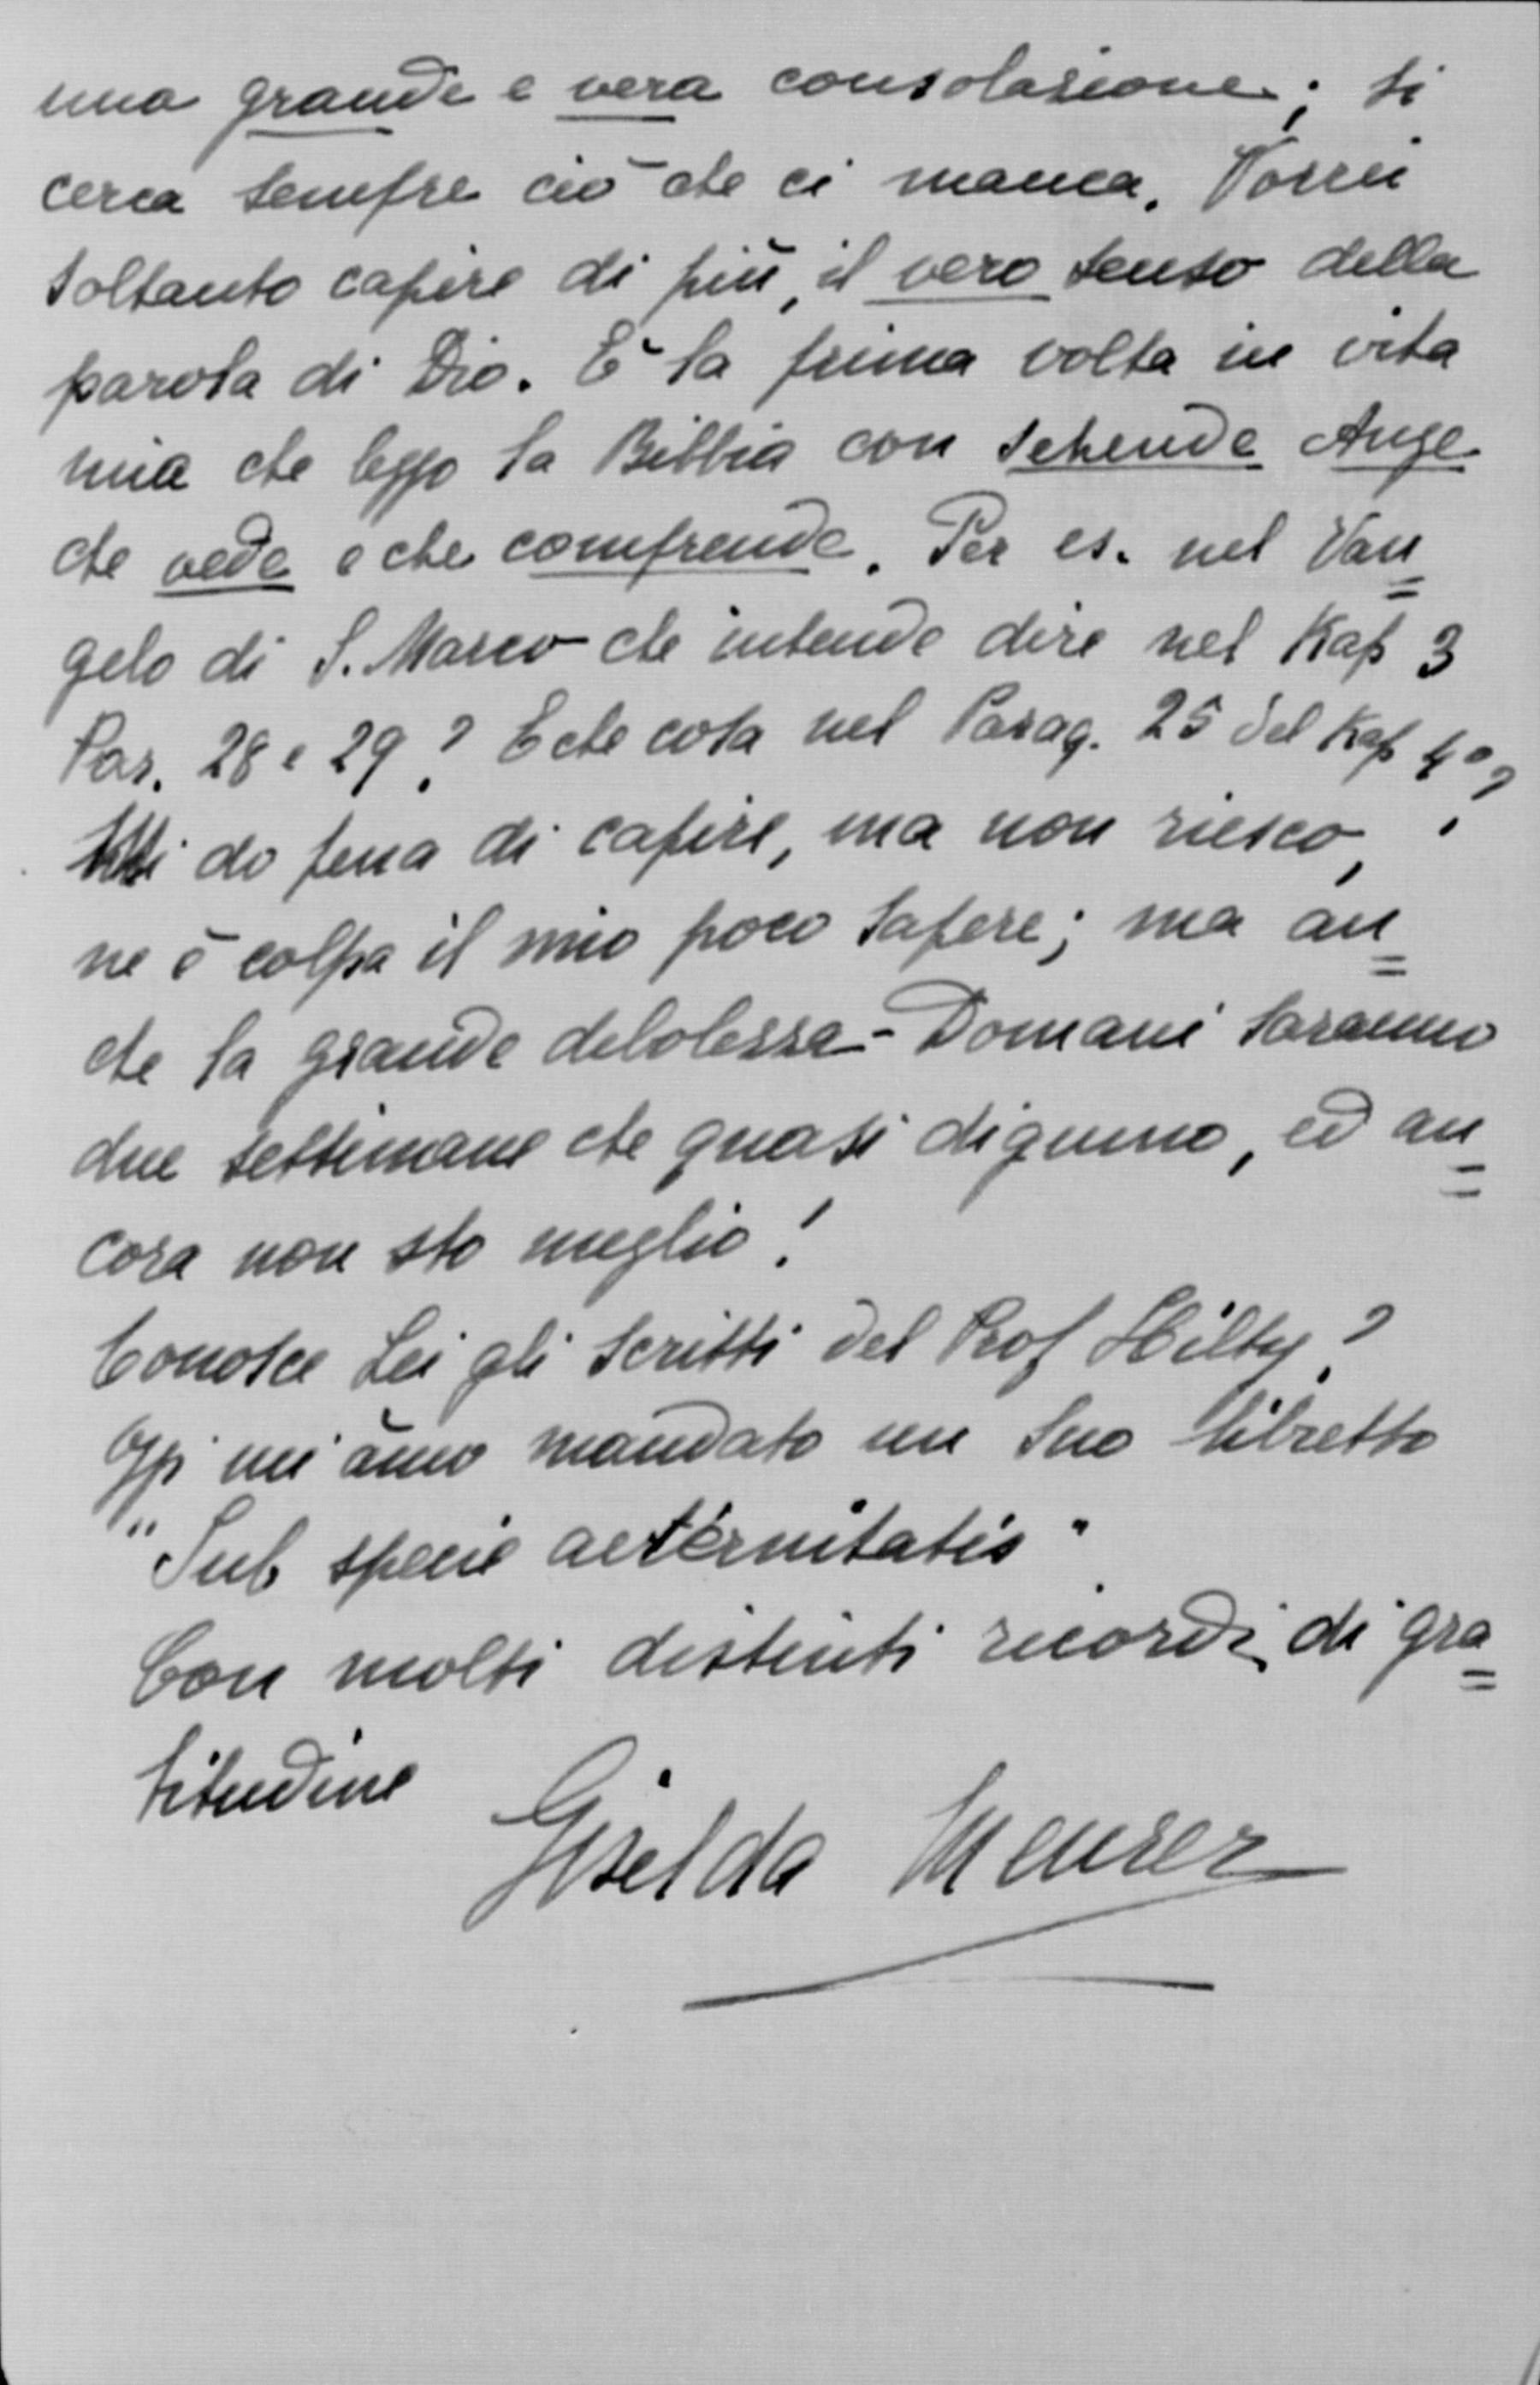 una grande e vera consolazione; si
cerca sempre ciò che ci manca. Vorrei
soltanto capire di più, il vero senso della
parola di Dio. È la prima volta in vita
mia che leggo la Bibbia con sehende Auge
che vede e che comprende. Per es. nel Van=
gelo di S. Marco che intende dire nel Kap 3
Par. 28 e 29? E che cosa nel Parag. 25 del Kap 4°?
Mi do pena di capire, ma non riesco,
ne è colpa il mio poco sapere; ma an=
che la grande debolezza - Domani saranno
due settimane che quasi digiuno, ed an=
cora non sto meglio!
Conosce Lei gli scritti del Prof Hilty?
Oggi mi ànno mandato un suo libretto
"Sub specie aeternitatis"
Con molti distinti ricordi di gra=
titudine
Giselda Meurer